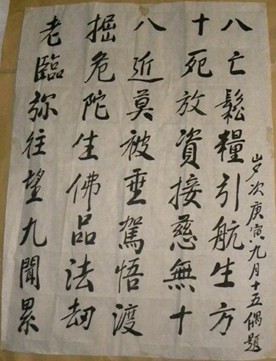 老掘八十八
臨危近死亡
弥陀莫放鬆
往生被資糧
望佛垂接引
九品駕慈航
聞法悟無生
累劫渡十方
岁次庚寅九月十五偶題